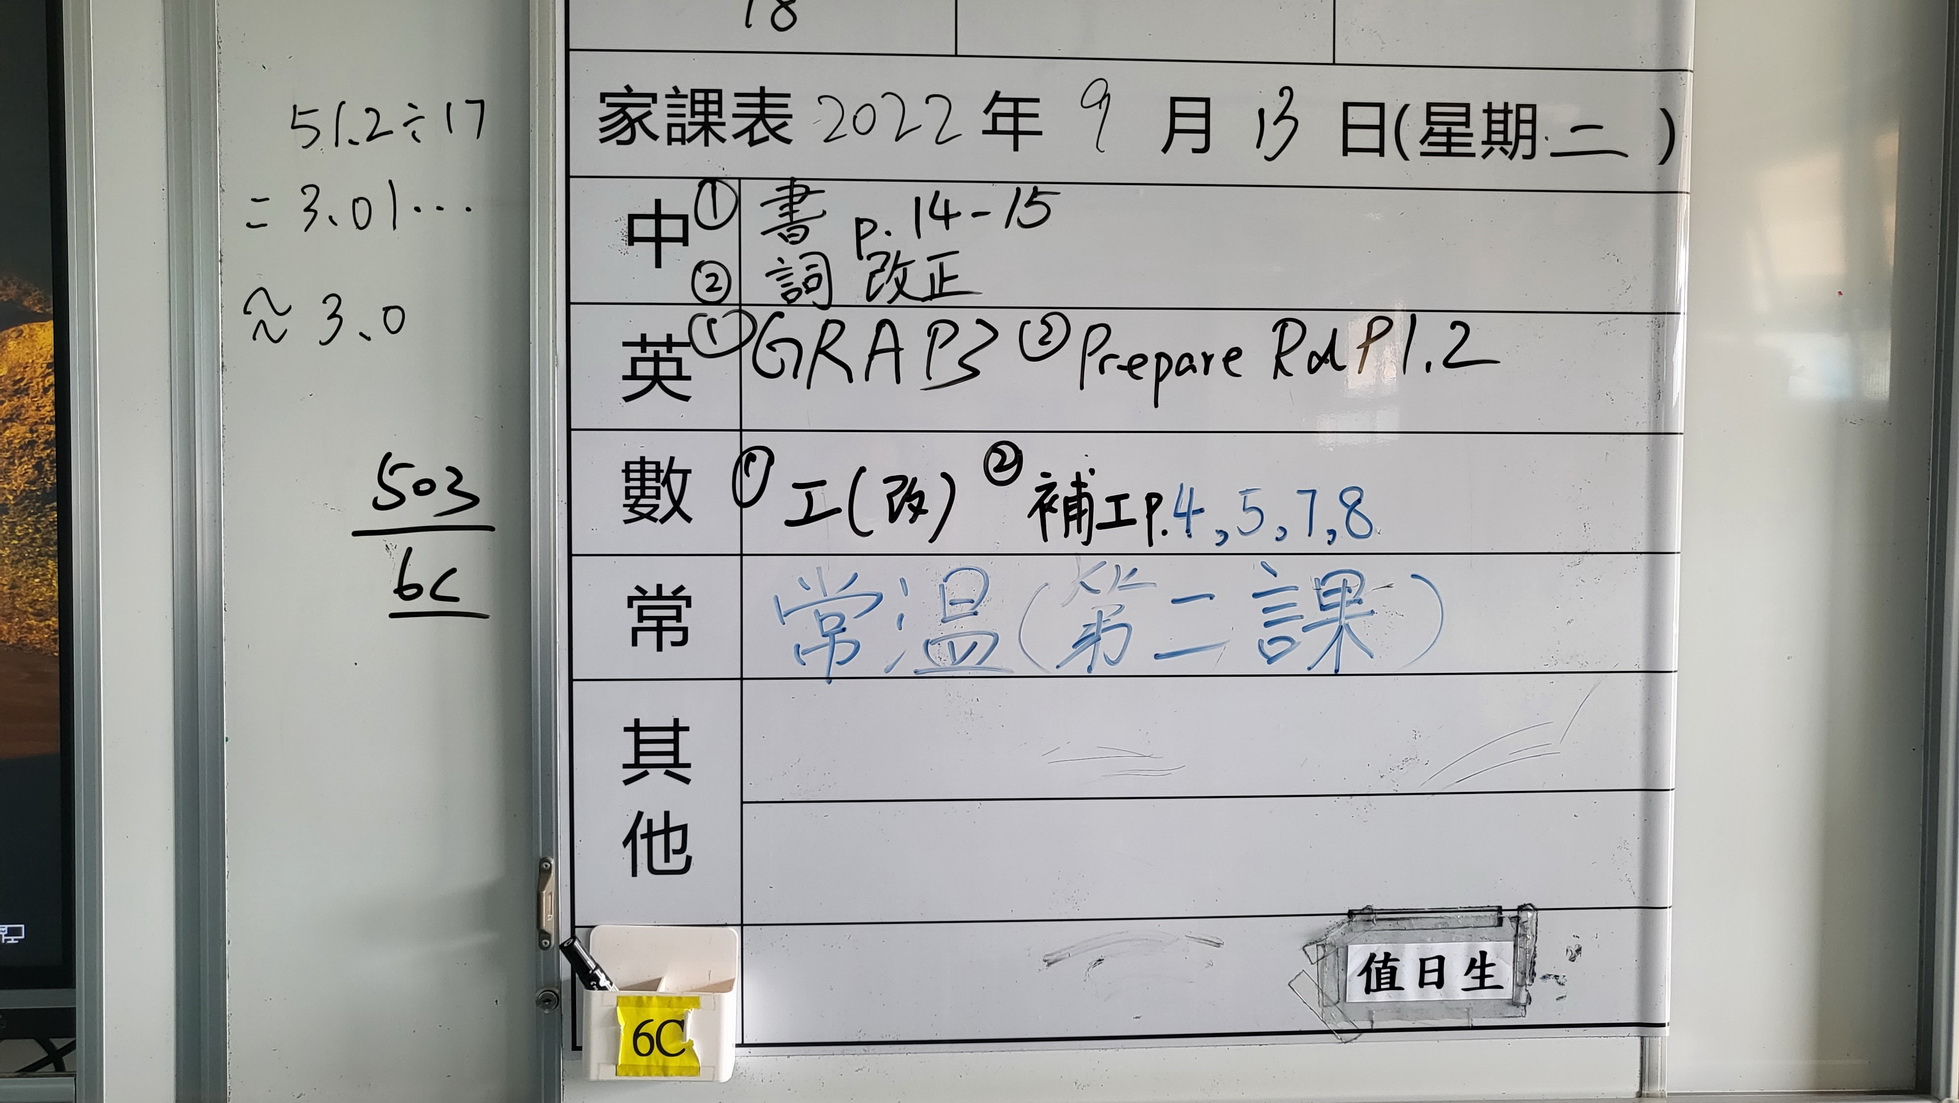 51.2÷17
=3.01...
≈3.0
503
6C
18
家課表 2022 年 9 月 13 日(星期 二 )
中 ① 書 p.14-15
② 詞 改正
英 ① GRA P3 ② Prepare Rd P1.2
數 ① 工(改) ② 補工P.4,5,7,8
常 常溫(第二課)
其他
值日生
6C